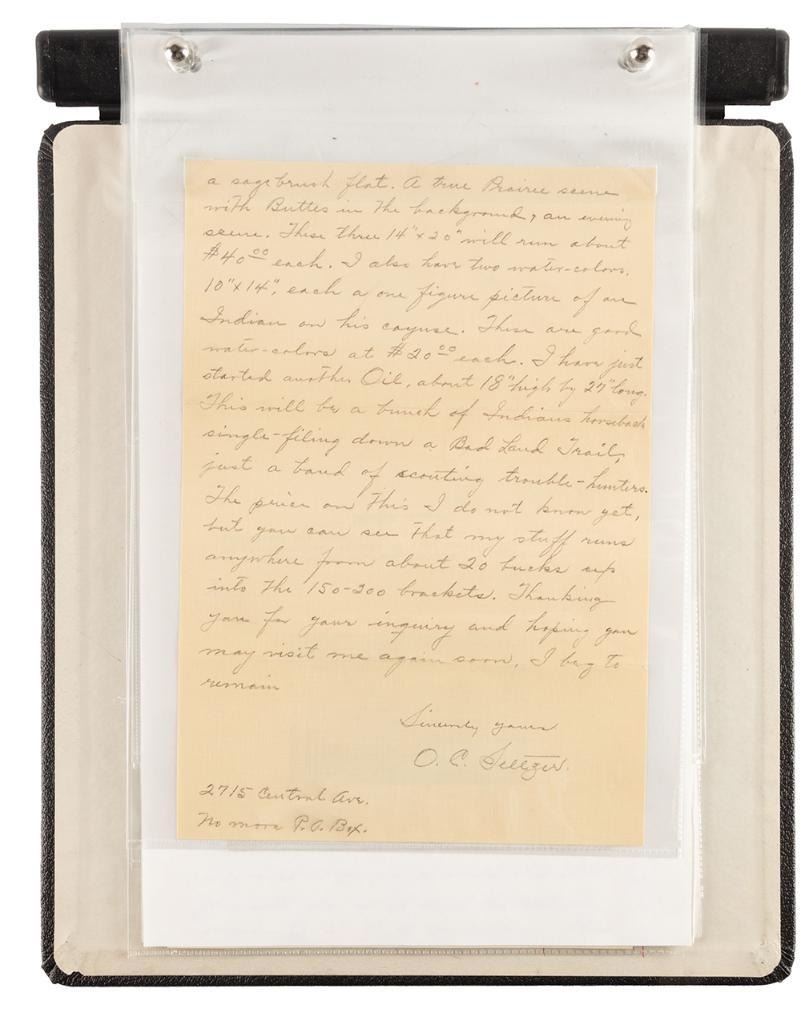 a sagebrush flat. A true Prairie scene
with Buttes in the background, an evening
scene. These three 14"x20" will run about
$40.00 each. I also have two water-colors,
10"x14", each a one figure picture of an
Indian on his cayuse. These are good
water-colors at $20.00 each. I have just
started another Oil, about 18" high by 27" long.
This will be a bunch of Indians horseback
single-filing down a Bad Land Trail,
just a band of scouting trouble-hunters.
The price on this I do not know yet,
but you can see that my stuff runs
anywhere from about 20 bucks up
into the 150-200 brackets. Thanking
you for your inquiry and hoping you
may visit me again soon, I beg to
remain
Sincerely yours
O. C. Seltzer.
2715 Central Ave.
No more P.O. Box.